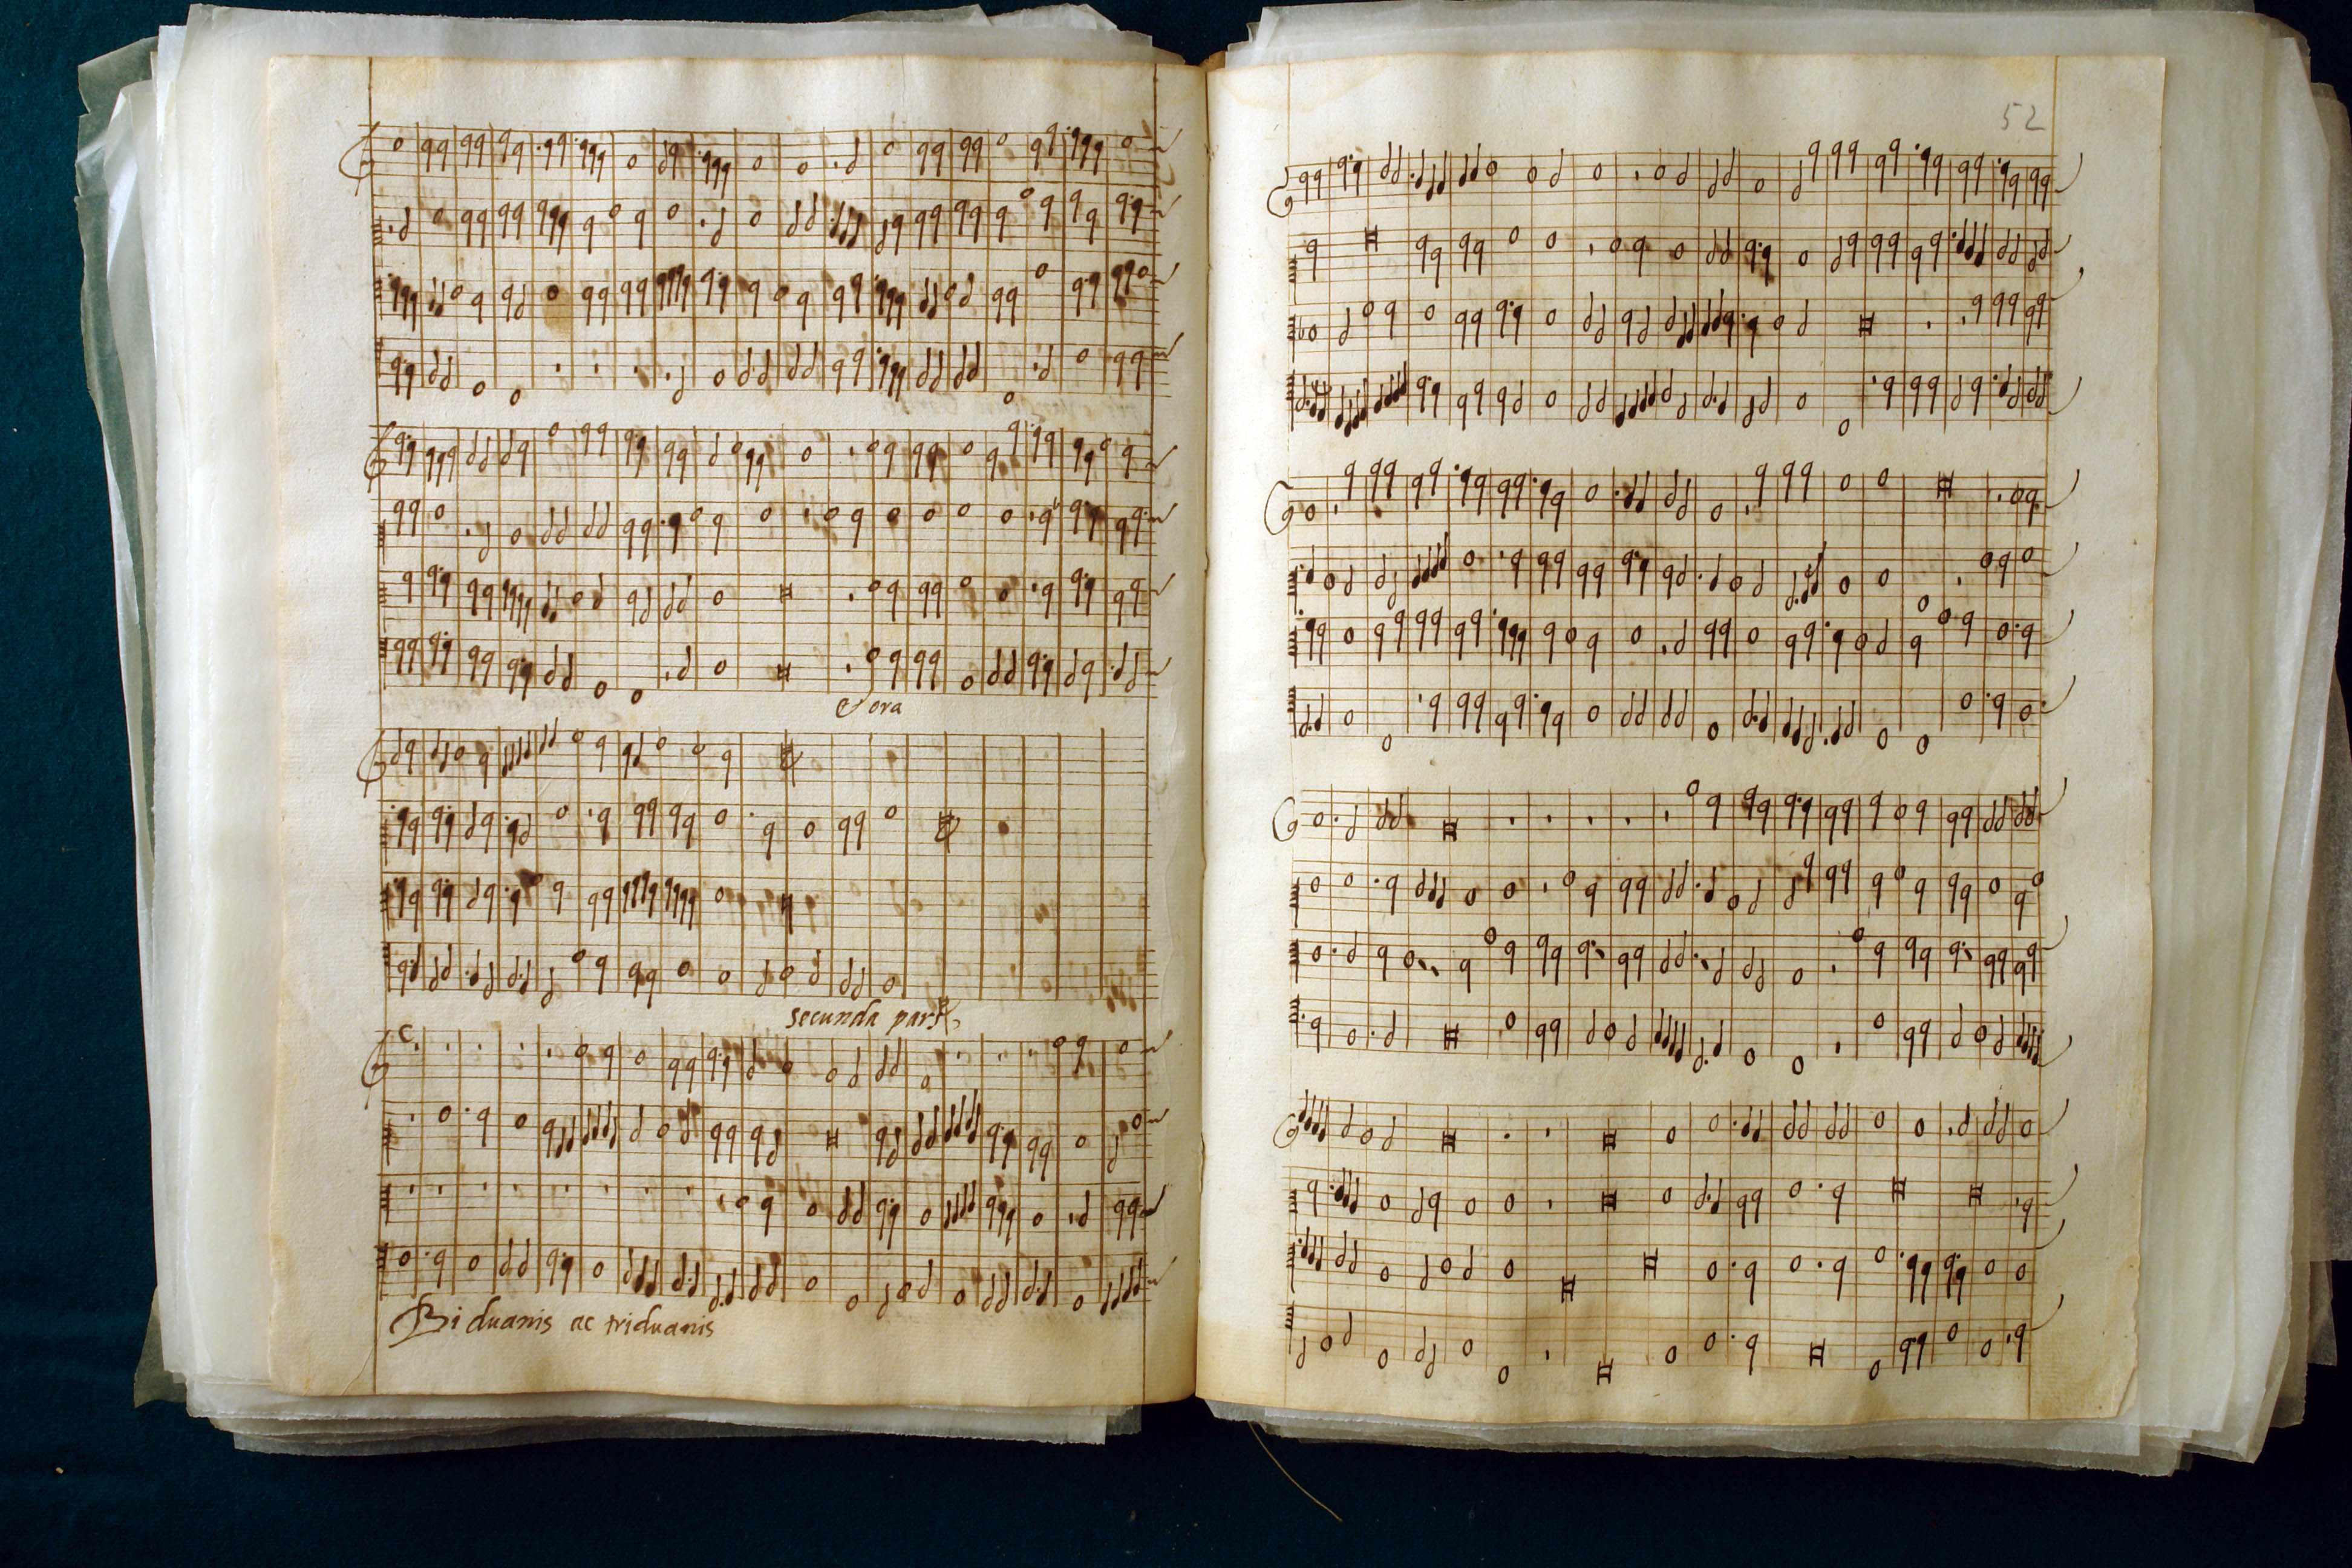 ora
secunda pars
C
Biduanis ac triduanis
52